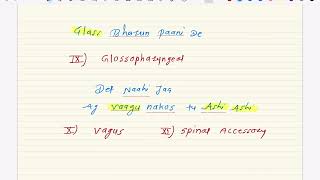 Glass Bhasun Paani De
IX) Glossopharyngeal
Def Naahi Jaa
Ag Vaagu nakos tu Ashi Ashi
X) Vagus XI) Spinal Accessory